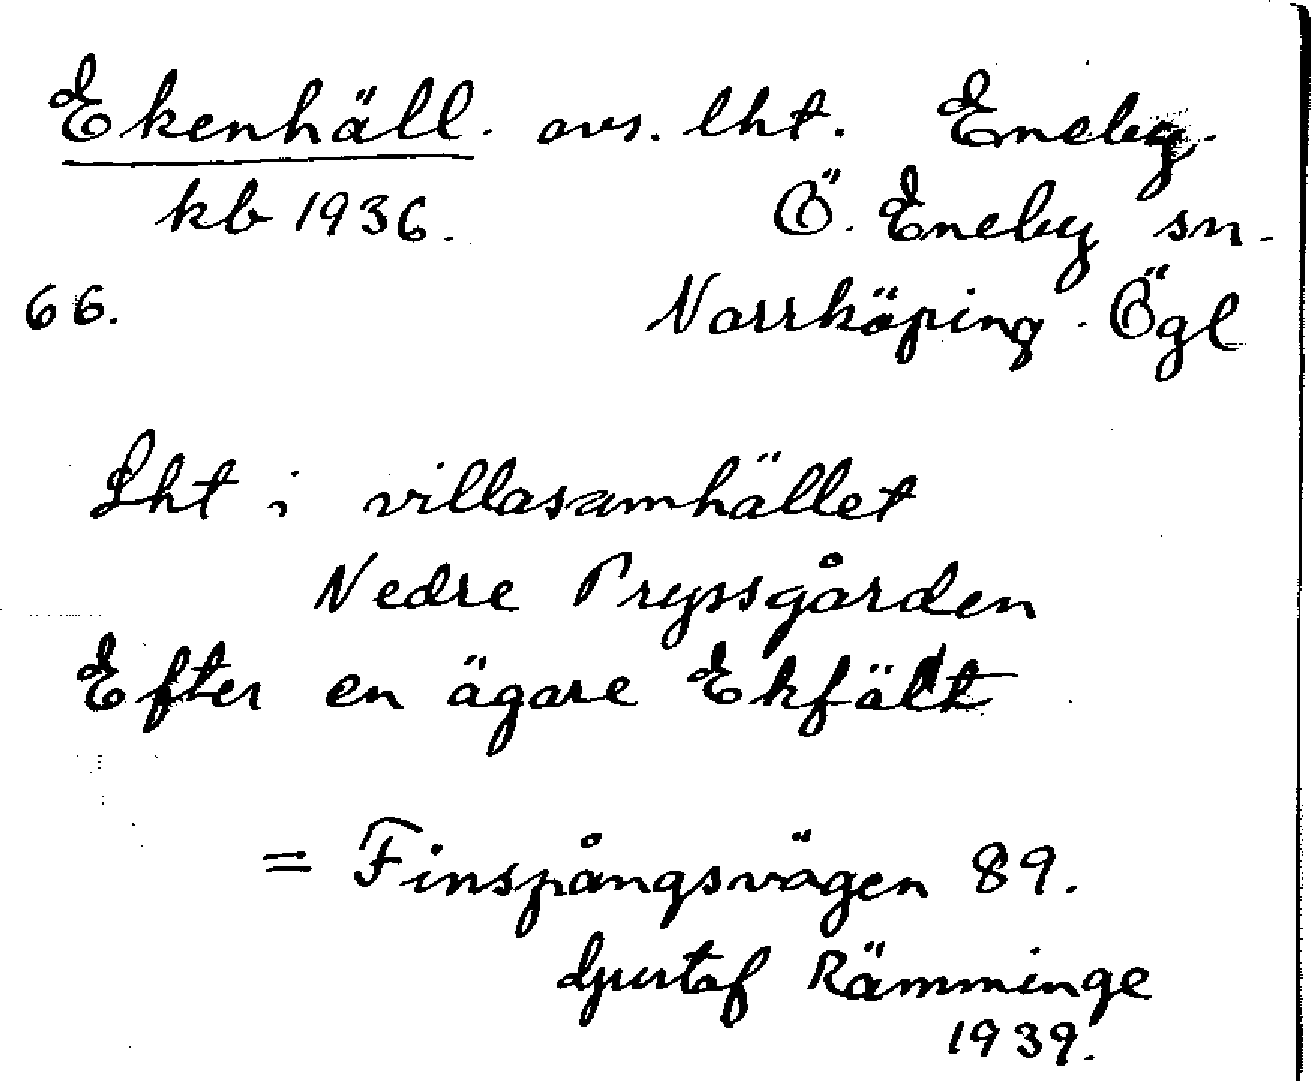 Ekenhäll. avs. lht. Eneby.
kb 1936. Ö. Eneby sn.
66. Norrköping. Ögl
Lht i villasamhället
Nedre Pryssgården
Efter en ägare Ekfält
= Finspångsvägen 89.
Gustaf Rämminge
1939.